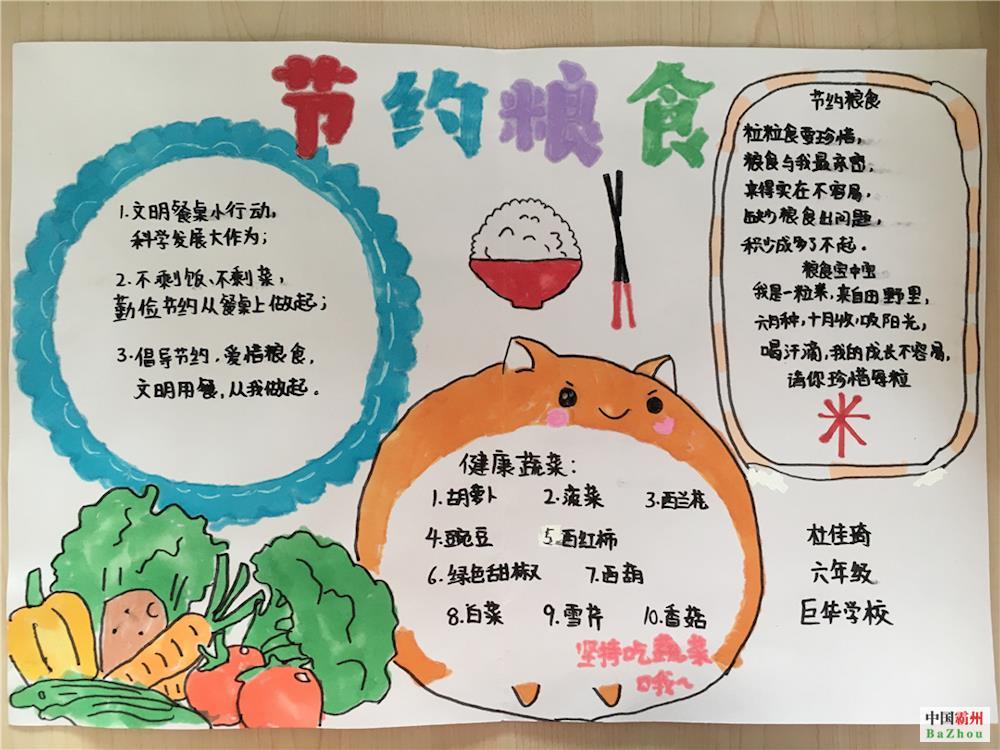 节约粮食
1.文明餐桌小行动,
科学发展大作为;
2.不剩饭、不剩菜,
勤俭节约从餐桌上做起;
3.倡导节约,爱惜粮食,
文明用餐,从我做起。
节约粮食
粒粒食要珍惜,
粮食与我最亲密,
来得实在不容易,
缺少粮食出问题,
积少成多了不起。
粮食宝中宝
我是一粒米,来自田野里,
六月种,十月收,吸阳光,
喝汗滴,我的成长不容易,
请你珍惜每粒
米
健康蔬菜:
1.胡萝卜 2.菠菜 3.西兰花
4.豌豆 5.西红柿
6.绿色甜椒 7.西葫
8.白菜 9.雪芹 10.香菇
坚持吃蔬菜
哦~
杜佳琦
六年级
巨华学校
中国霸州
BaZhou